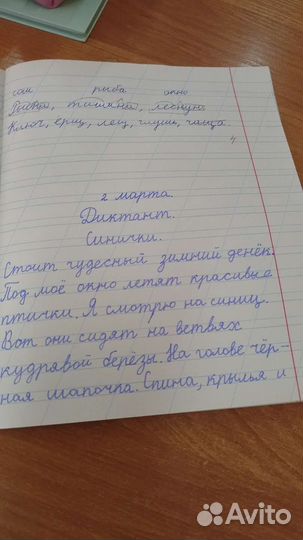 сот рыба окно
тишина,
Ключ, ёрш, лещ, глушь, чаща.
4
2 марта.
Диктант.
Синички.
Стоит чудесный зимний денёк.
Под моё окно летят красивые
птички. Я смотрю на синиц.
Вот они сидят на ветвях
кудрявой берёзы. На голове чёр-
ная шапочка. Спина, крылья и
Avito